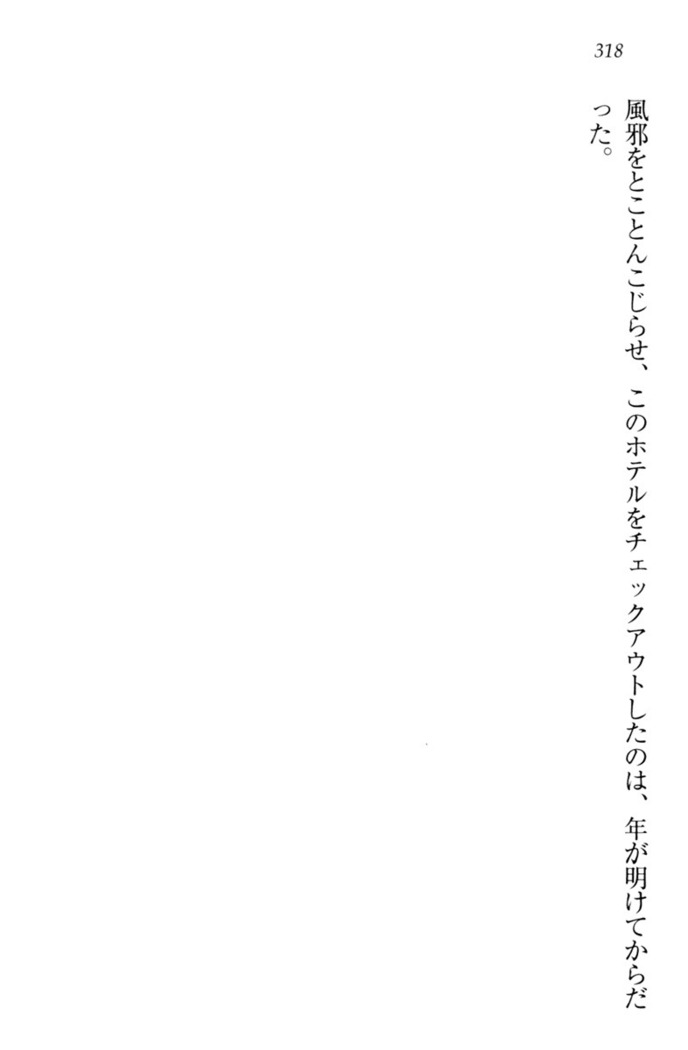 318
風邪をとことんこじらせ、このホテルをチェックアウトしたのは、年が明けてからだ
った。